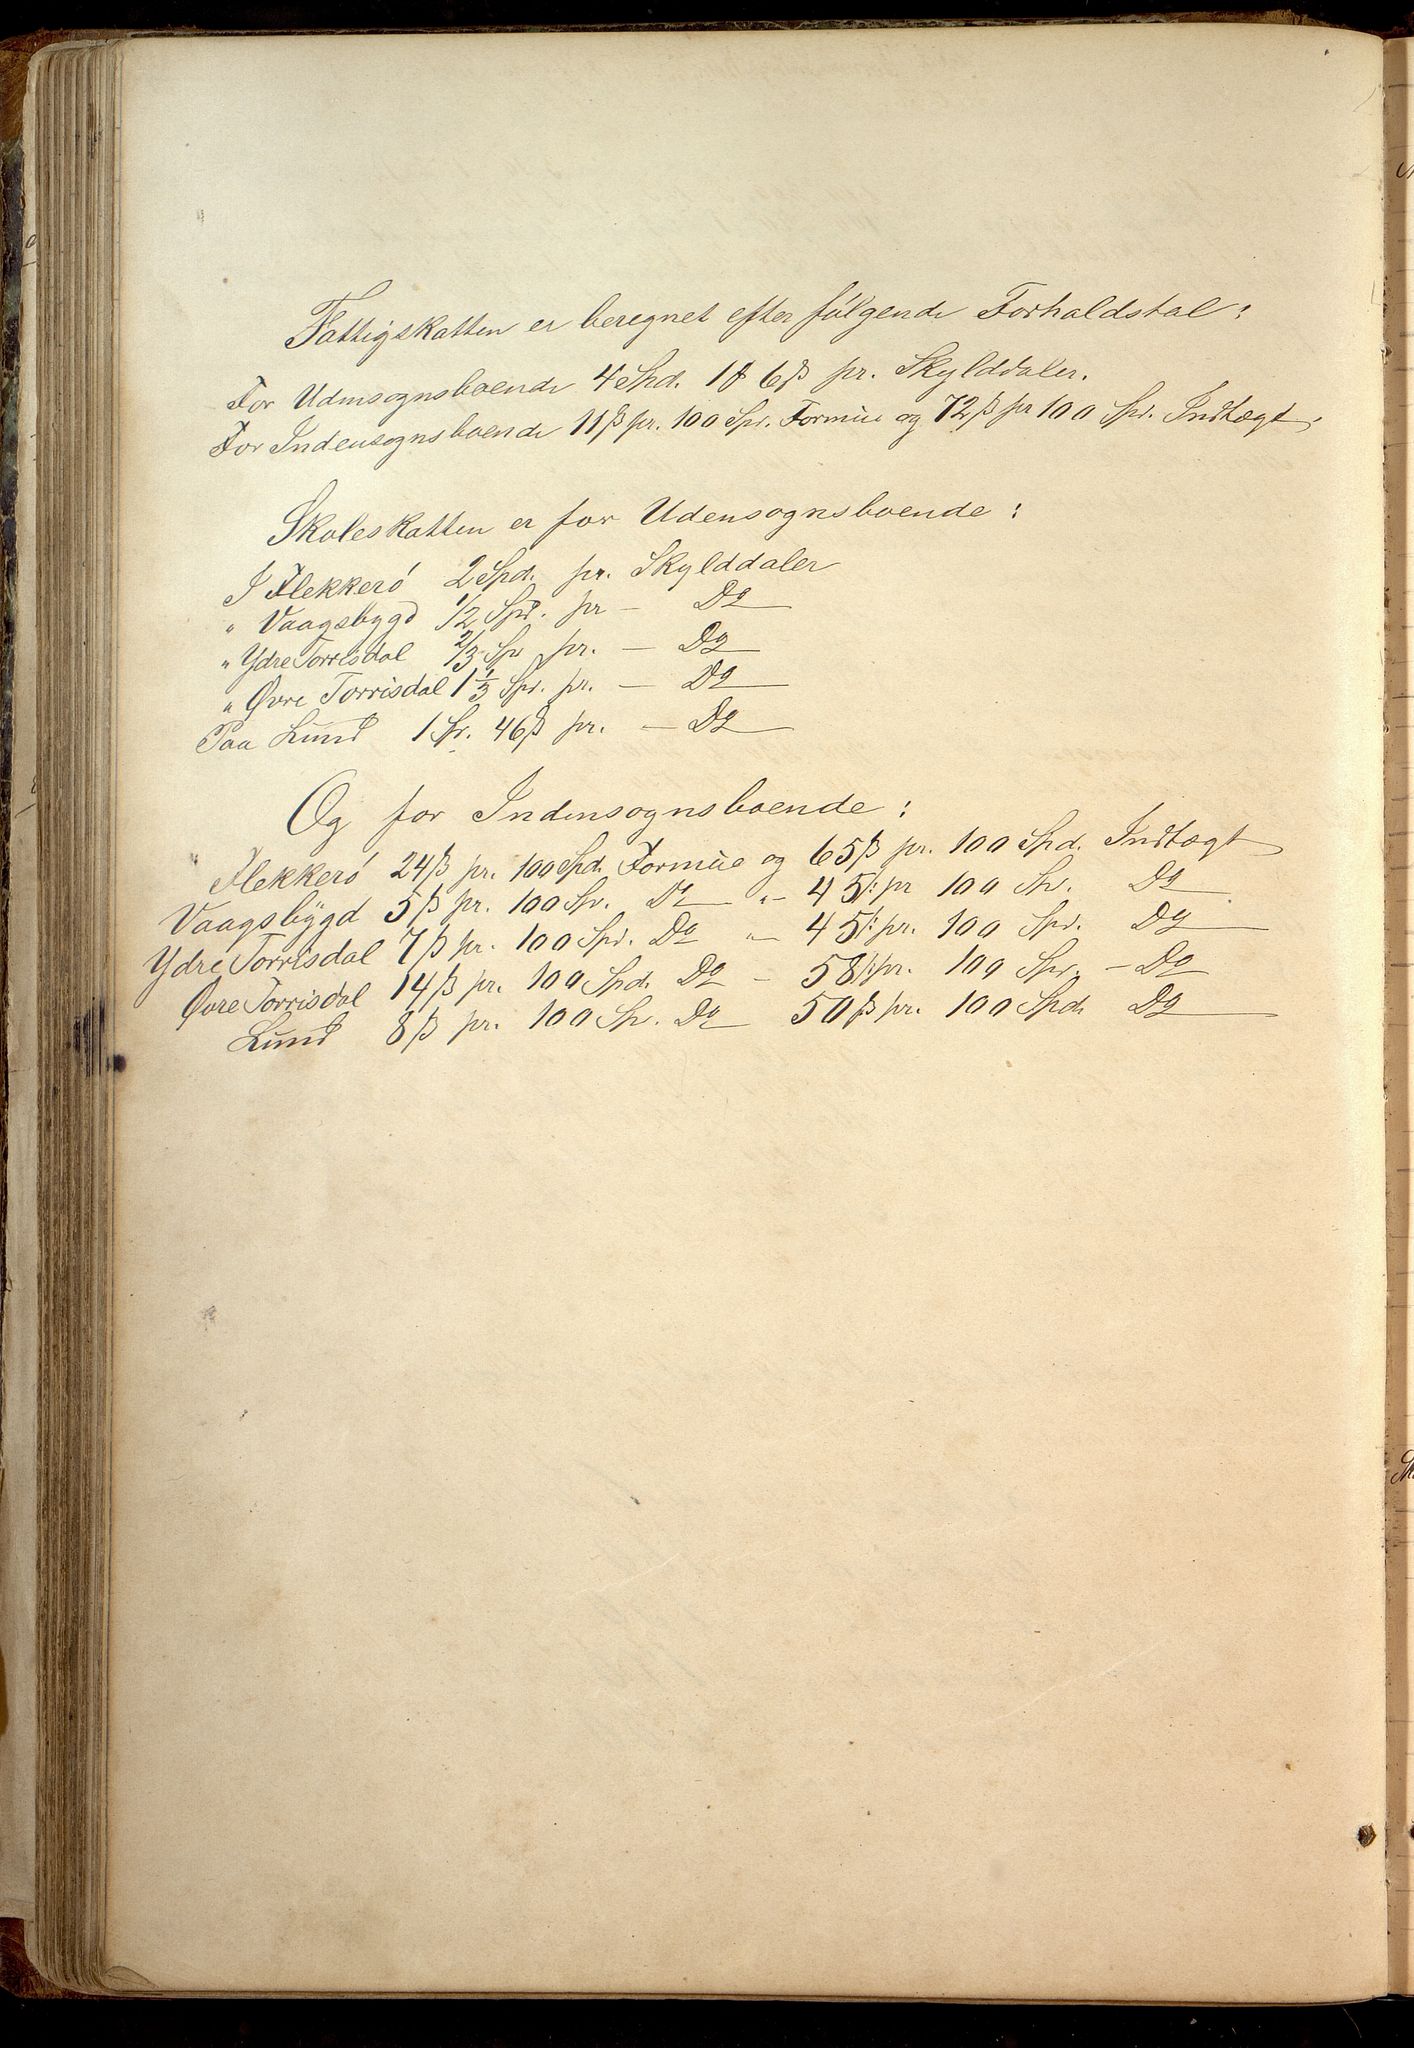 Fattigskatten er beregnet efter følgende Forholdstal:
For Udensognsboende 4 Spd. 1 ß 6 ß pr. Skylddaler.
For Indensognsboende 11 ß pr. 100 Spd. Formue og 72 ß pr 100 Spd. Indtægt.
Skoleskatten er for Udensognsboende:
I Flekkerø 2 Spd. pr. Skylddaler
" Vaagsbygd 1/2 Spd. pr — Do
" Ydre Torrisdal 2/3 Sp pr. — Do
" Øvre Torrisdal 1 1/3 Spd. pr. — Do
Paa Lund 1 Sp. 46 ß pr. — Do
Og for Indensognsboende:
Flekkerø 24 ß pr. 100 Spd. Formue og 65 ß pr. 100 Spd. Indtægt
Vaagsbygd 5 ß pr. 100 Sp. Do "— 45 ß pr 100 Sp. Do
Ydre Torrisdal 7 ß pr. 100 Spd. Do "— 45 ß pr. 100 Spd. Do
Øvre Torrisdal 14 ß pr. 100 Spd. Do — 58 ß pr. 100 Spd. — Do
Lund 8 ß pr. 100 Sp. Do 50 ß pr. 100 Spd. Do